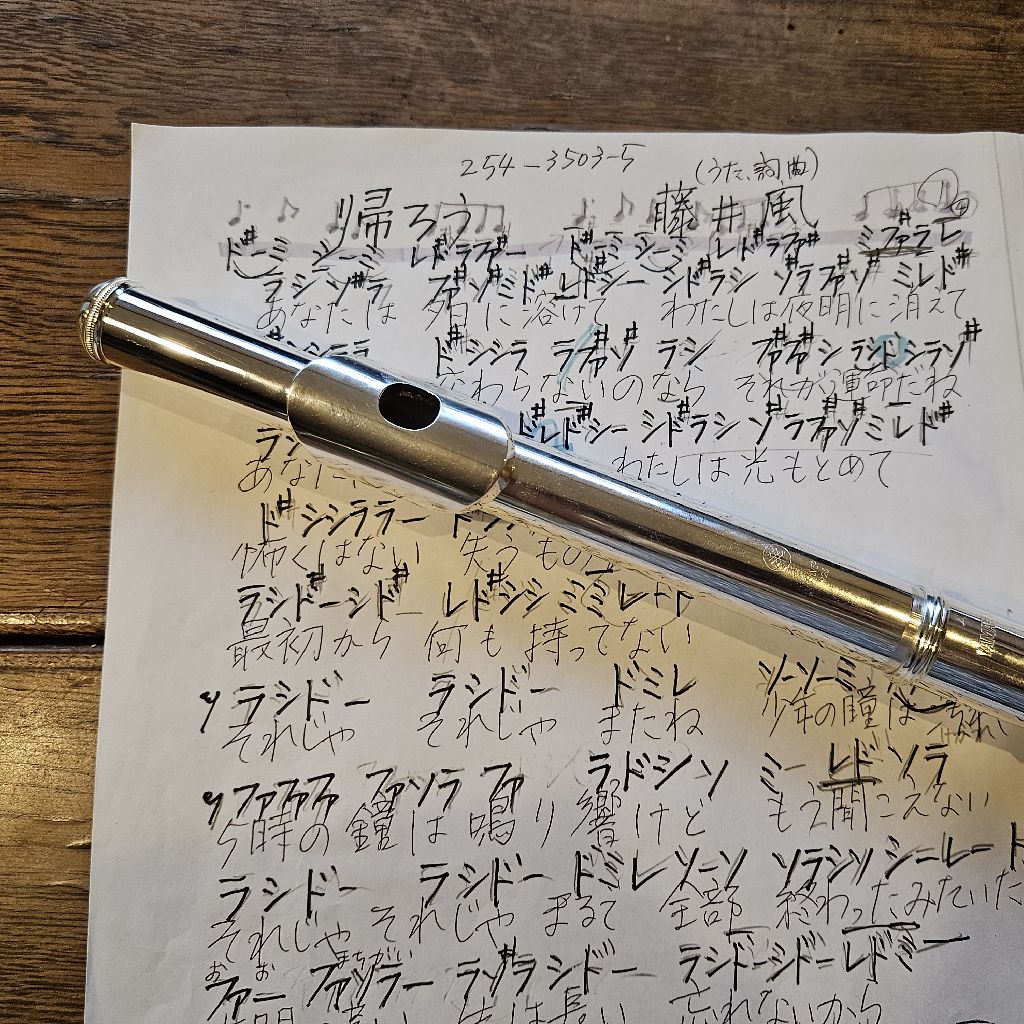 254-3503-5 (うた、詞曲)
帰ろう 藤井風
ド#ーミ シーミ レド#ラファ#ー ド#ーミシーミ レド#ラファ# ミファ#ラレ
ラシソ#ラ ファ#ソ#ミド# レド#シー シド#ラシ ソ#ラファ#ソ# ミレド#
あなたは 夕日に溶けて わたしは夜明に消えて
ド#シシラ ラファ#ソ# ラシ ファ#ファ#シ シラソ#
交わらないのなら それが運命だね
ド#レド#シー シド#ラシ ソ#ラファ#ソ#ミレド#
あなたに わたしは光もとめて
ド#シシララー
怖くはない 失うもの
ラシド#ーシド# レド#シシ ミミレ
最初から 何も持ってない
ラシドー ラシドー ドミレ ソーソーミ
それじゃ それじゃ またね 少年の瞳は
ファファファ ファソラファ ラドシソ ミーレドソラ
5時の鐘は鳴り響けど もう聞こえない
ラシドー ラシドー ドミレソーソ ソラシソシーレード
それじゃ それじゃ まるで 全部 終わったみたいだ
おお まちがい
ファー ファソラー ラソ#ラシドー ラシドーシドーレドミー
忘れないから